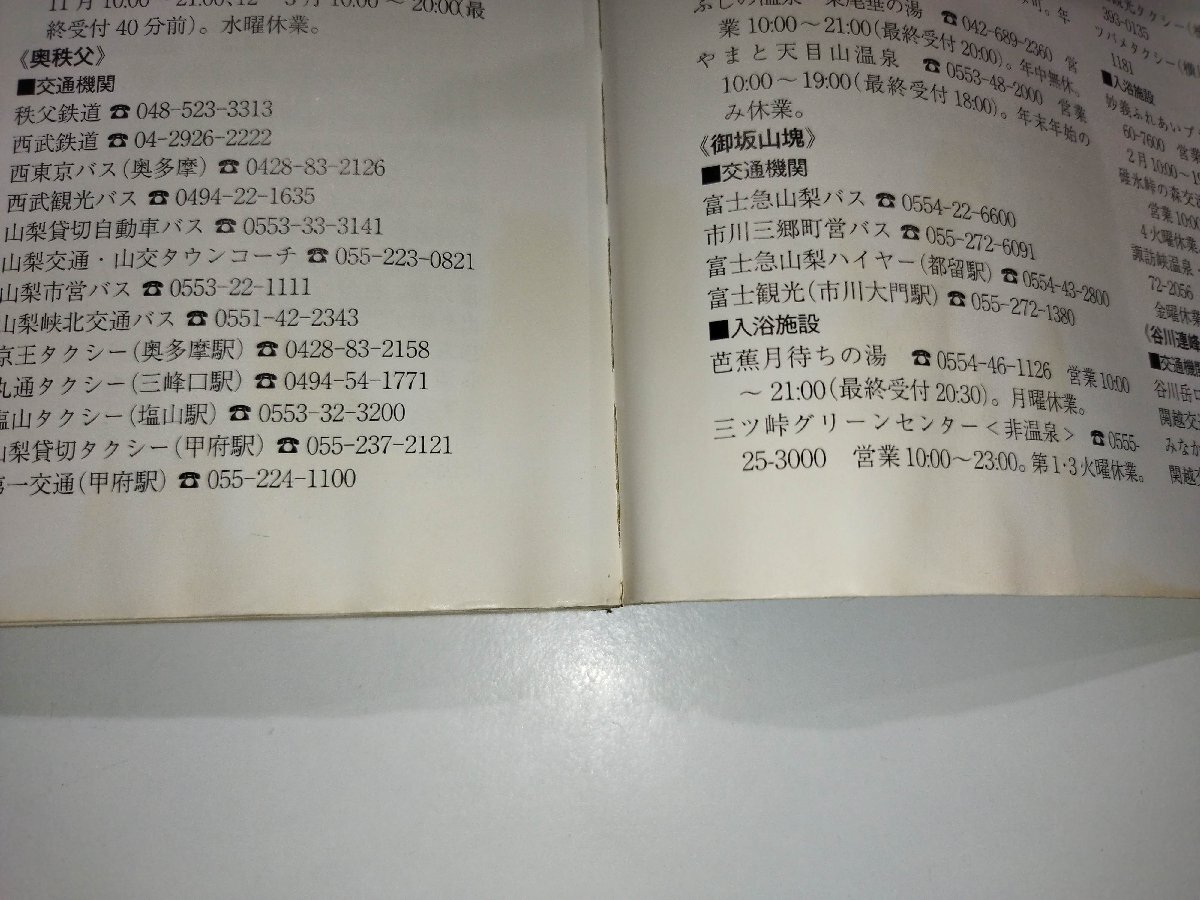 11月10:00～21:00、12～3月10:00～20:00(最
終受付40分前)。水曜休業。
《奥秩父》
■交通機関
秩父鉄道 ☎048-523-3313
西武鉄道 ☎04-2926-2222
西東京バス(奥多摩) ☎0428-83-2126
西武観光バス ☎0494-22-1635
山梨貸切自動車バス ☎0553-33-3141
山梨交通・山交タウンコーチ ☎055-223-0821
山梨市営バス ☎0553-22-1111
山梨峡北交通バス ☎0551-42-2343
京王タクシー(奥多摩駅) ☎0428-83-2158
丸通タクシー(三峰口駅) ☎0494-54-1771
塩山タクシー(塩山駅) ☎0553-32-3200
山梨貸切タクシー(甲府駅) ☎055-237-2121
第一交通(甲府駅) ☎055-224-1100
の湯 ☎042-689-2360 営
業10:00～21:00(最終受付20:00)。年中無休。
やまと天目山温泉 ☎0553-48-2000 営業
10:00～19:00(最終受付18:00)。年末年始の
み休業。
《御坂山塊》
■交通機関
富士急山梨バス ☎0554-22-6600
市川三郷町営バス ☎055-272-6091
富士急山梨ハイヤー(都留駅) ☎0554-43-2800
富士観光(市川大門駅) ☎055-272-1380
■入浴施設
芭蕉月待ちの湯 ☎0554-46-1126 営業10:00
～21:00(最終受付20:30)。月曜休業。
三ツ峠グリーンセンター<非温泉> ☎0555-
25-3000 営業10:00～23:00。第1・3火曜休業。
観光タクシー(
393-0135
ツバメタクシー(横
1181
■入浴施設
妙義ふれあいプ
60-7600 営業
2月10:00～
碓氷峠の森交
営業10:00
4火曜休業
諏訪峡温泉
72-2056
金曜休業
《谷川連峰
■交通機関
谷川岳ロ
関越交
みなか
関越交